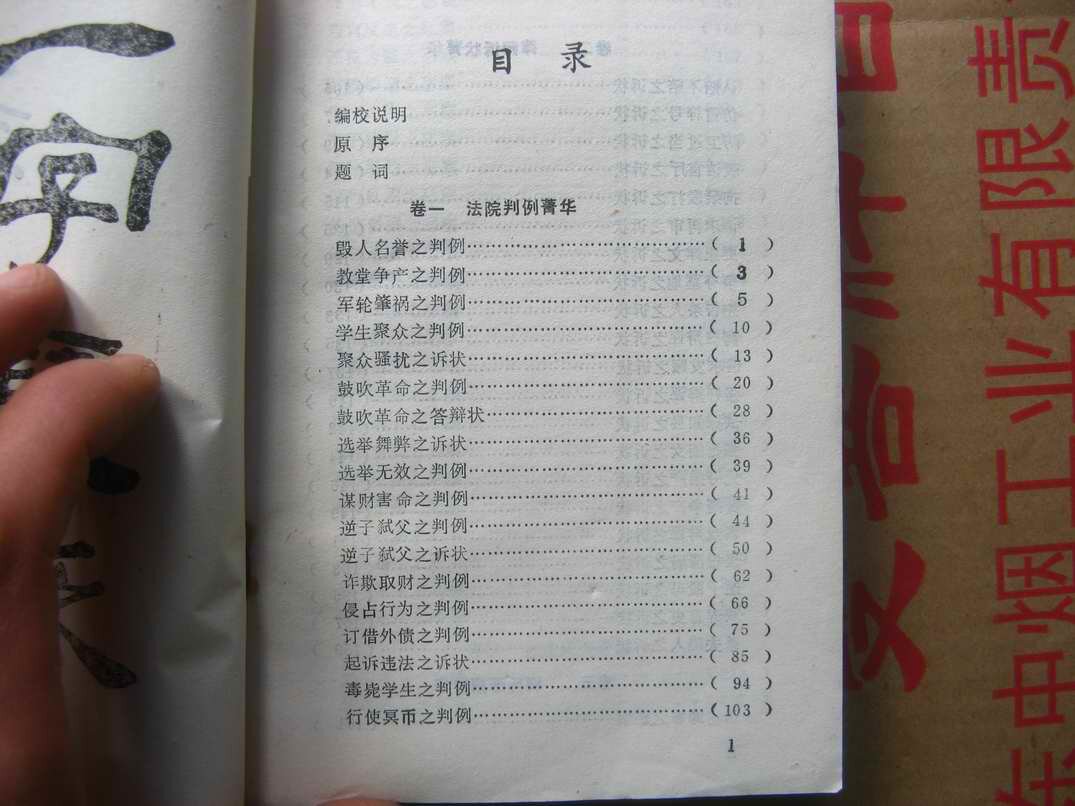 目 录
编校说明
原 序
题 词
卷一 法院判例菁华
毁人名誉之判例……………………………( 1 )
教堂争产之判例……………………………( 3 )
军轮肇祸之判例……………………………( 5 )
学生聚众之判例……………………………( 10 )
聚众骚扰之诉状……………………………( 13 )
鼓吹革命之判例……………………………( 20 )
鼓吹革命之答辩状…………………………( 28 )
选举舞弊之诉状……………………………( 36 )
选举无效之判例……………………………( 39 )
谋财害命之判例……………………………( 41 )
逆子弑父之判例……………………………( 44 )
逆子弑父之诉状……………………………( 50 )
诈欺取财之判例……………………………( 62 )
侵占行为之判例……………………………( 66 )
订借外债之判例……………………………( 75 )
起诉违法之诉状……………………………( 85 )
毒毙学生之判例……………………………( 94 )
行使冥币之判例……………………………( 103 )
1
一字
中烟工业有限责